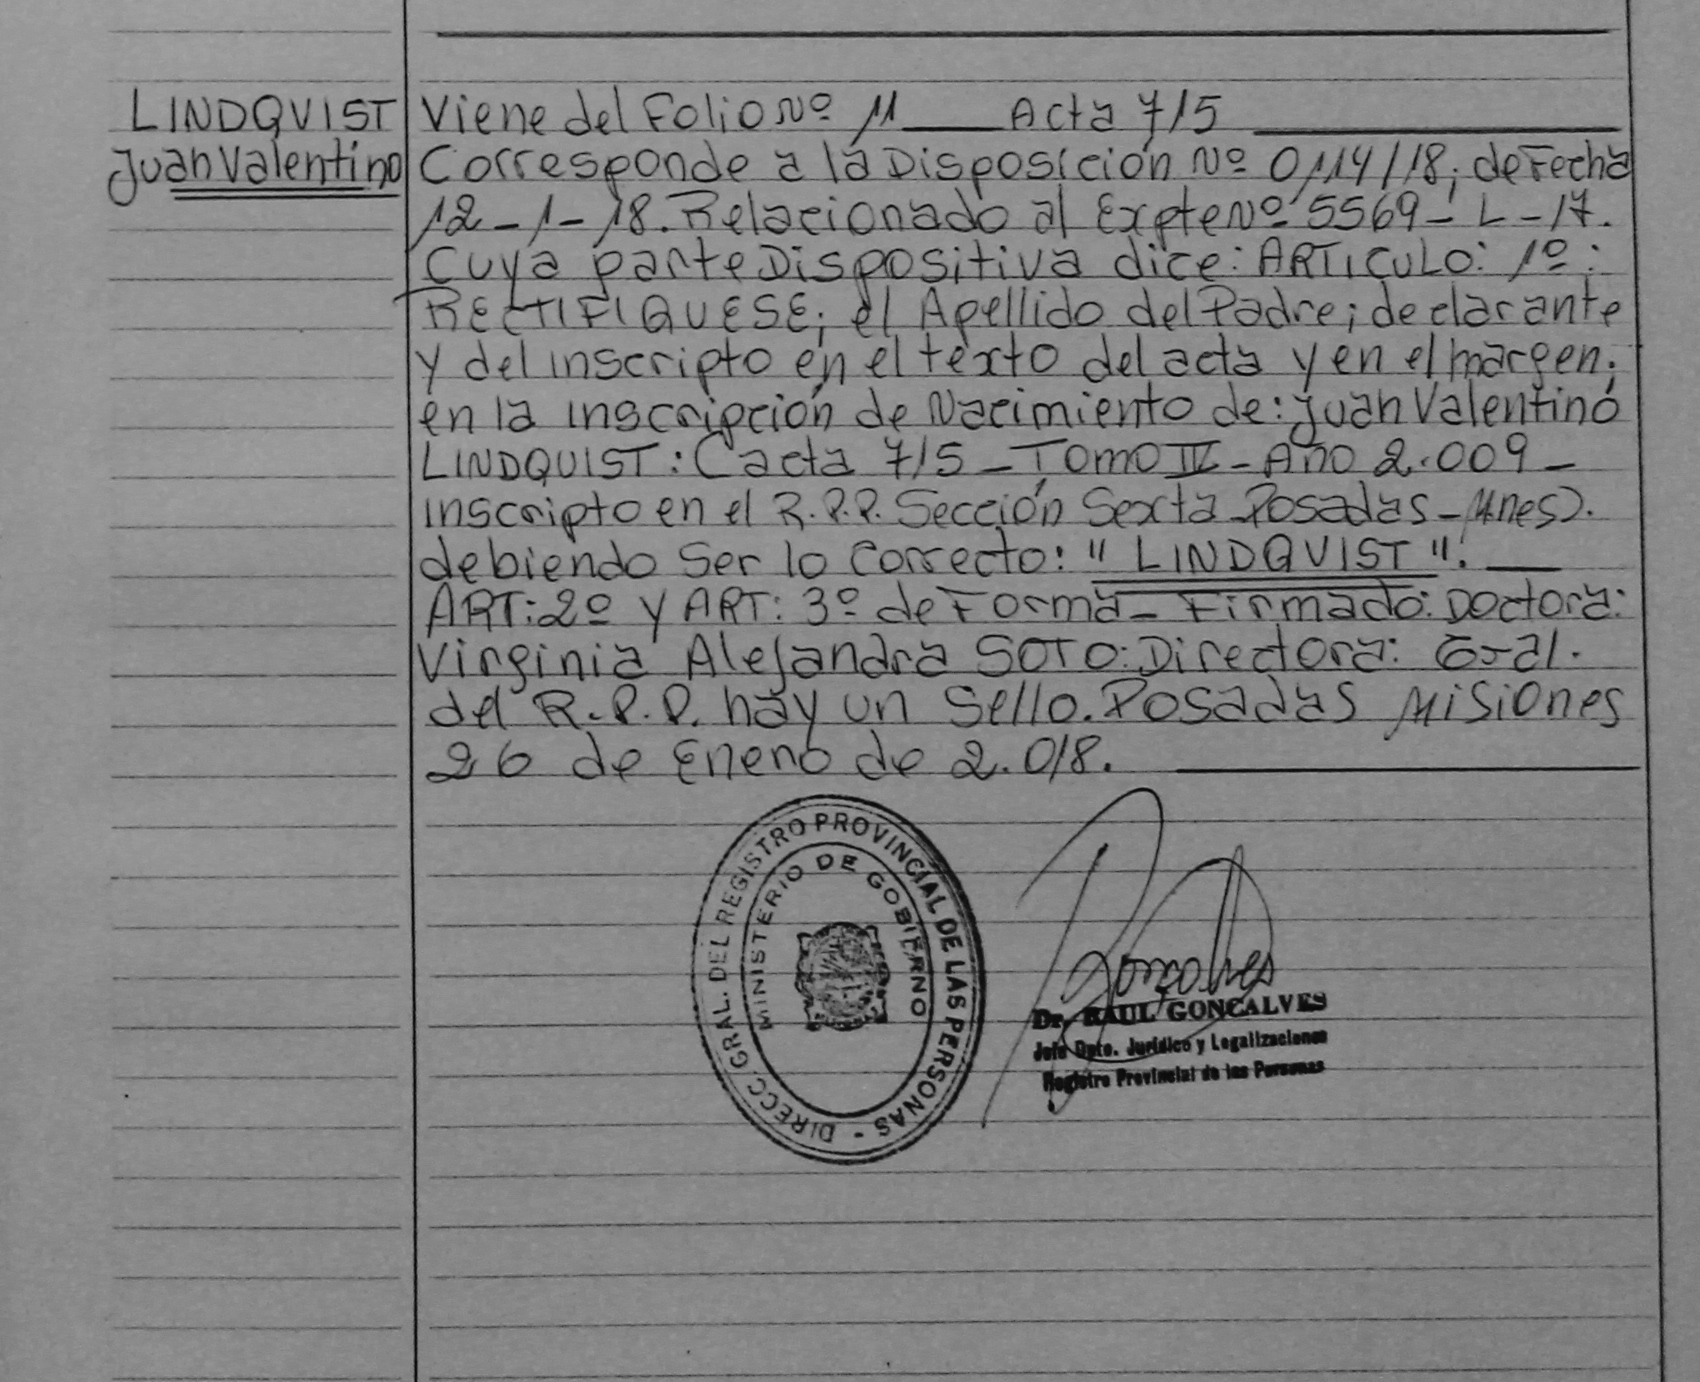 LINDQVIST
Juan Valentino
Viene del Folio Nº 11 Acta 715
Corresponde a la Disposición Nº 0114/18; de Fecha
12-1-18. Relacionado al Expte Nº 5569-L-17.
Cuya parte Dispositiva dice: ARTICULO: 1º:
RECTIFIQUESE; el Apellido del Padre; declarante
y del inscripto en el texto del acta y en el margen;
en la inscripción de Nacimiento de: Juan Valentino
LINDQUIST: (acta 715 - Tomo IV - Año 2.009 -
inscripto en el R.P.P. Sección Sexta Posadas - Mnes).
debiendo ser lo correcto: "LINDQVIST".
ART: 2º y ART: 3º de Forma - Firmado: Doctora:
Virginia Alejandra SOTO: Directora: Gral.
del R.P.P. hay un sello. Posadas Misiones
26 de Enero de 2.018.
DIRECC. GRAL. DEL REGISTRO PROVINCIAL DE LAS PERSONAS -
MINISTERIO DE GOBIERNO
Goncalves
Dr. RAUL GONCALVES
Jefe Dpto. Jurídico y Legalizaciones
Registro Provincial de las Personas